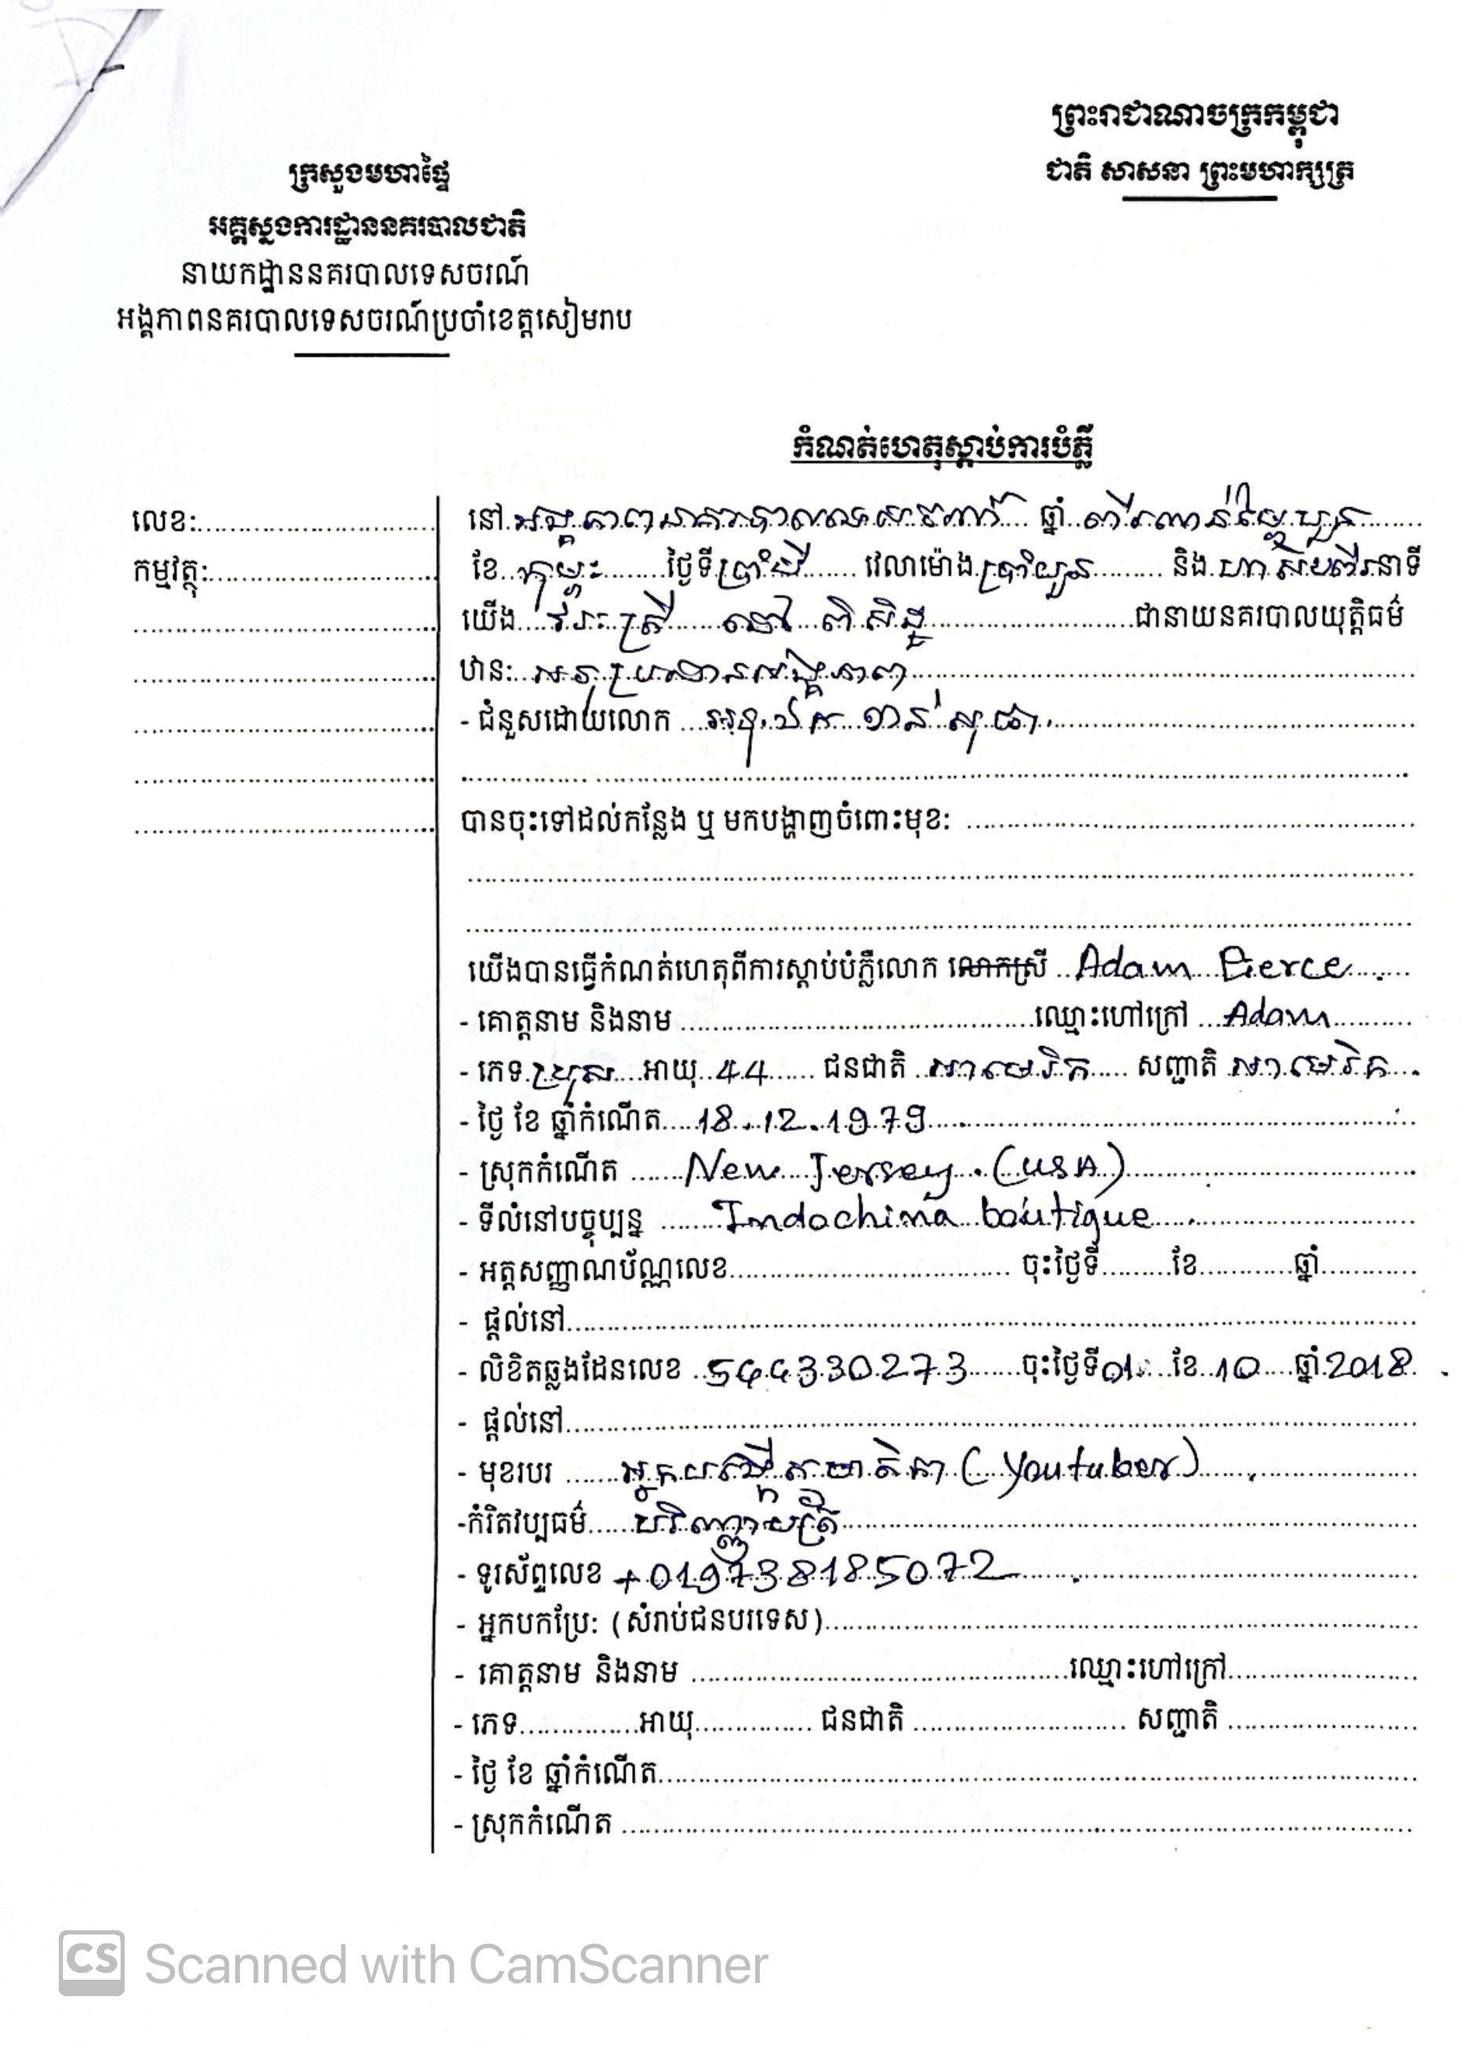 ព្រះរាជាណាចក្រកម្ពុជា
ជាតិ សាសនា ព្រះមហាក្សត្រ
ក្រសួងមហាផ្ទៃ
អគ្គស្នងការដ្ឋាននគរបាលជាតិ
នាយកដ្ឋាននគរបាលទេសចរណ៍
អង្គភាពនគរបាលទេសចរណ៍ប្រចាំខេត្តសៀមរាប
កំណត់ហេតុស្តាប់ការបំភ្លឺ
លេខ:
កម្មវត្ថុ:
នៅ អង្គភាពនគរបាលទេសចរណ៍ ឆ្នាំ ពីរពាន់ម្ភៃបួន
ខែ កុម្ភៈ ថ្ងៃទី ប្រាំបី វេលាម៉ោង ប្រាំបួន និង ហាសិបពីរ នាទី
យើង វរៈត្រី ពិសិដ្ឋ ជានាយនគរបាលយុត្តិធម៌
ឋានៈ អនុប្រធានអង្គភាព
- ជំនួសដោយលោក
បានចុះទៅដល់កន្លែង ឬ មកបង្ហាញចំពោះមុខ:
យើងបានធ្វើកំណត់ហេតុពីការស្តាប់បំភ្លឺលោក លោកស្រី Adam Pierce
- គោត្តនាម និងនាម ឈ្មោះហៅក្រៅ Adam
- ភេទ ប្រុស អាយុ 44 ជនជាតិ អាមេរិក សញ្ជាតិ អាមេរិក
- ថ្ងៃ ខែ ឆ្នាំកំណើត 18.12.1979
- ស្រុកកំណើត New Jersey (USA)
- ទីលំនៅបច្ចុប្បន្ន Indochina boutique
- អត្តសញ្ញាណប័ណ្ណលេខ ចុះថ្ងៃទី ខែ ឆ្នាំ
- ផ្តល់នៅ
- លិខិតឆ្លងដែនលេខ 544330273 ចុះថ្ងៃទី 01 ខែ 10 ឆ្នាំ 2018
- ផ្តល់នៅ
- មុខរបរ អ្នកបង្កើតមាតិកា (Youtuber)
-កំរិតវប្បធម៌ បរិញ្ញាបត្រ
- ទូរស័ព្ទលេខ +019738185072
- អ្នកបកប្រែ: (សំរាប់ជនបរទេស)
- គោត្តនាម និងនាម ឈ្មោះហៅក្រៅ
- ភេទ អាយុ ជនជាតិ សញ្ជាតិ
- ថ្ងៃ ខែ ឆ្នាំកំណើត
- ស្រុកកំណើត
CS Scanned with CamScanner